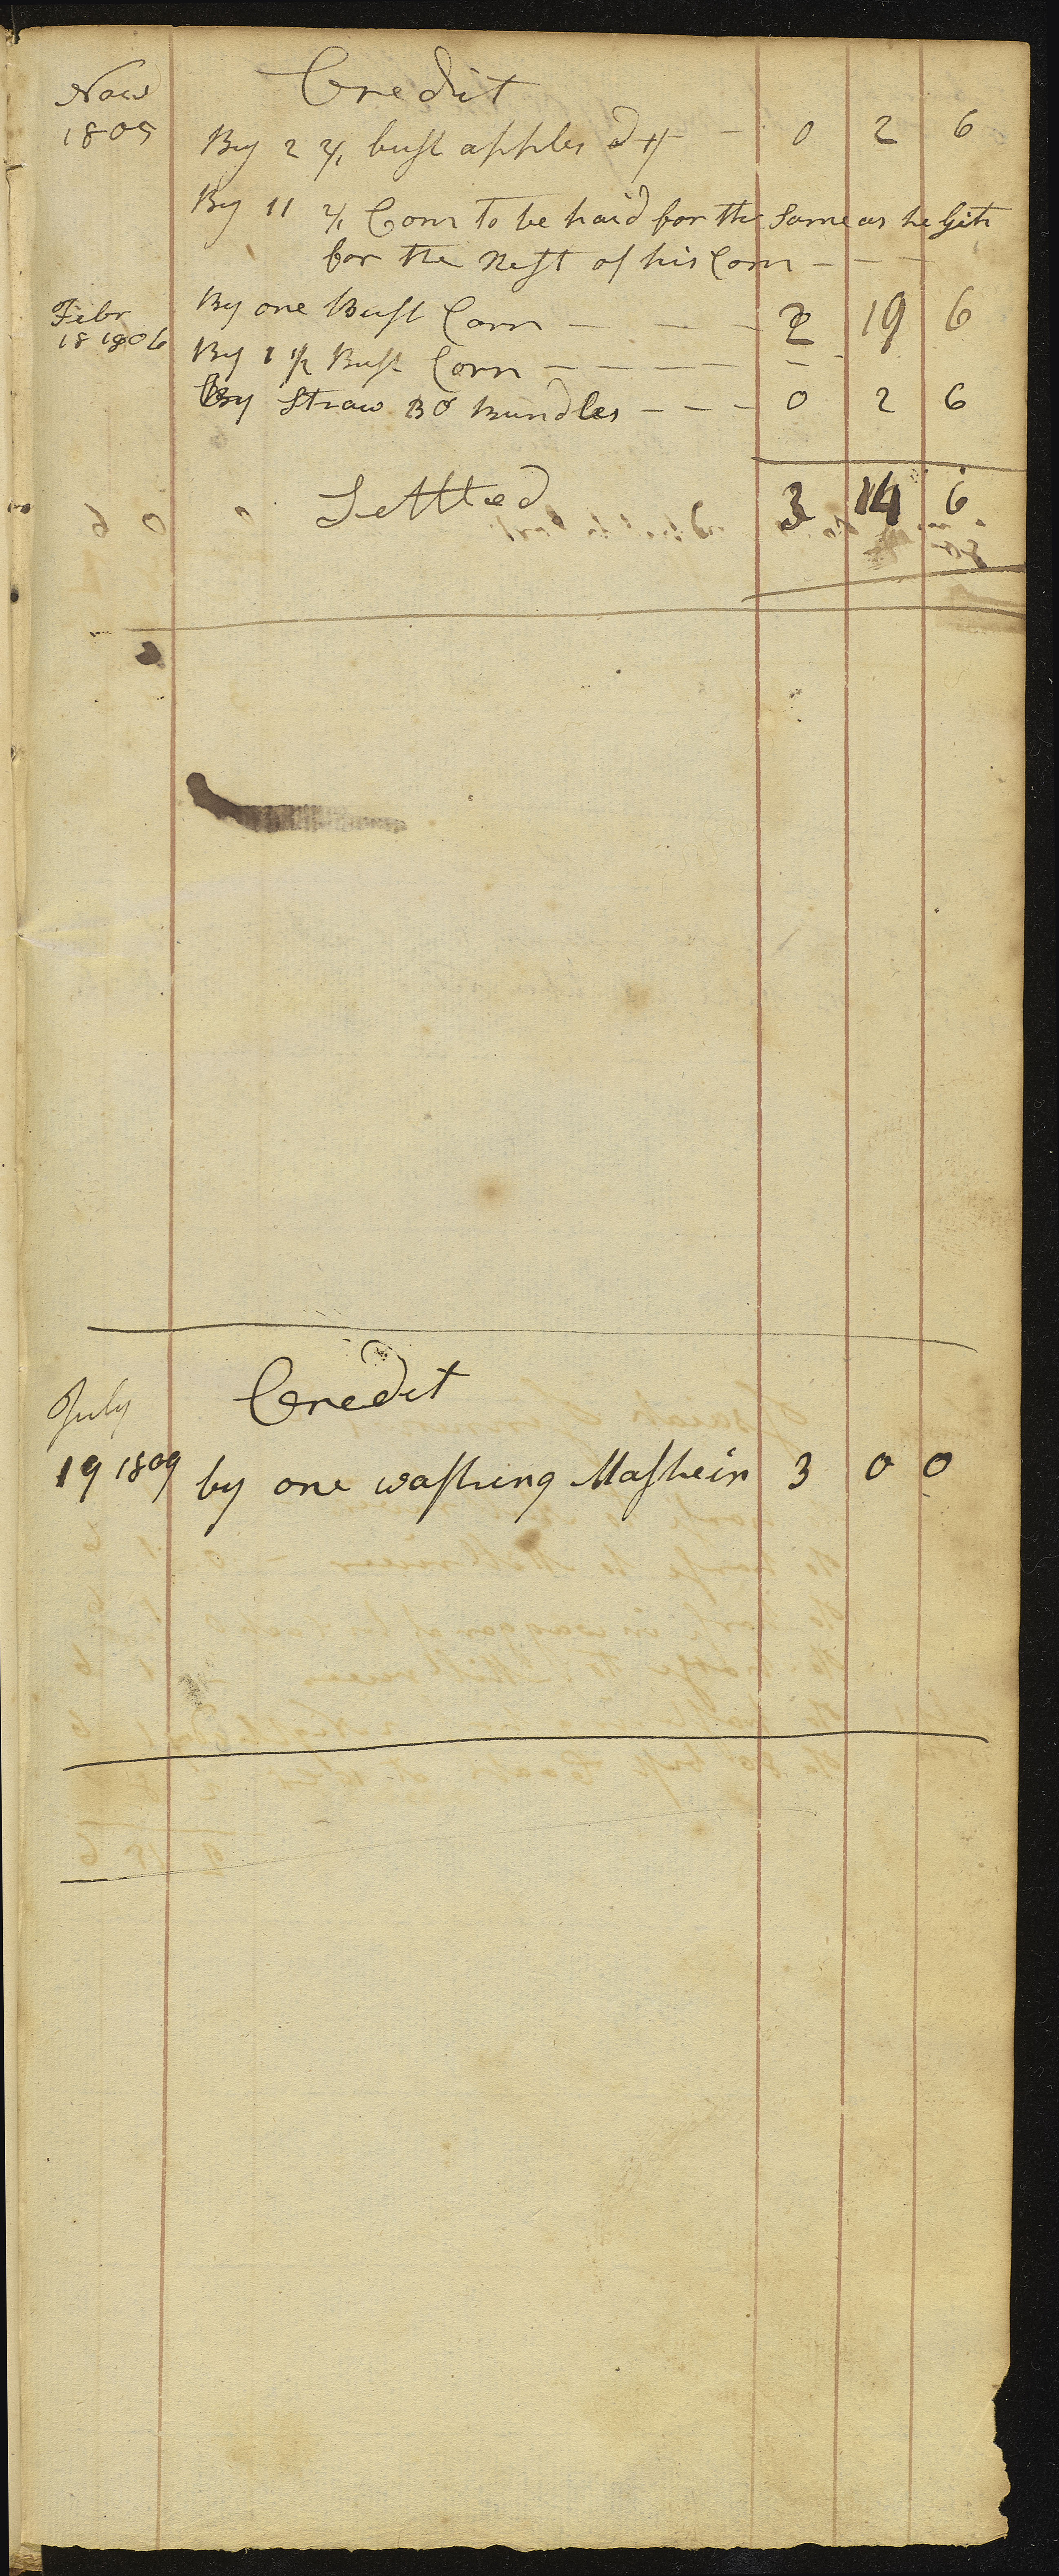 Novr Credit
1805 By 2 1/2 bush apples @ 1/ - 0 2 6
By 11 1/2 Corn to be paid for the same as he Gets
for the Rest of his Corn - - -
Febr By one Bush Corn - - - - 2 19 6
18 1806 By 1 1/2 Bush Corn - - - - - -
By Straw 30 Bundles - - - 0 2 6
Settled 3 14 6
July Credit
19 1809 by one washing Mashein 3 0 0